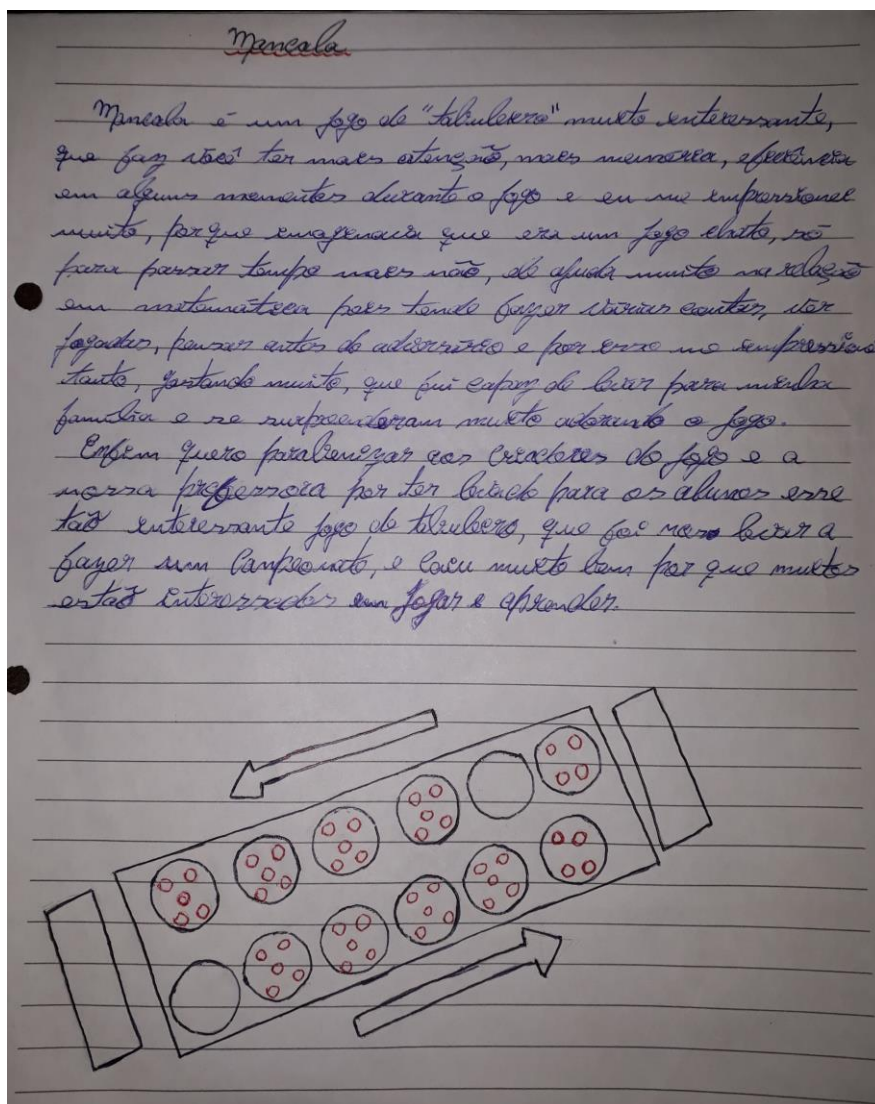 Mancala
Mancala é um jogo de "tabuleiro" muito interessante,
que faz você ter mais atenção, mais memória, eficiência
em alguns momentos durante o jogo e eu me impressionei
muito, porque imaginava que era um jogo chato, só
para passar tempo mais não, ele ajuda muito na relação
em matemática pois tende fazer várias contas, ver
jogadas, pensar antes do adversário e por isso me impressiono
tanto, gostando muito, que fui capaz de levar para minha
família e se surpreenderam muito adorando o jogo.
Enfim quero parabenizar aos criadores do jogo e a
nossa professora por ter levado para os alunos esse
tão interessante jogo de tabuleiro, que foi nos levar a
fazer um Campeonato, e caiu muito bem por que muitos
estão interessados em jogar e aprender.